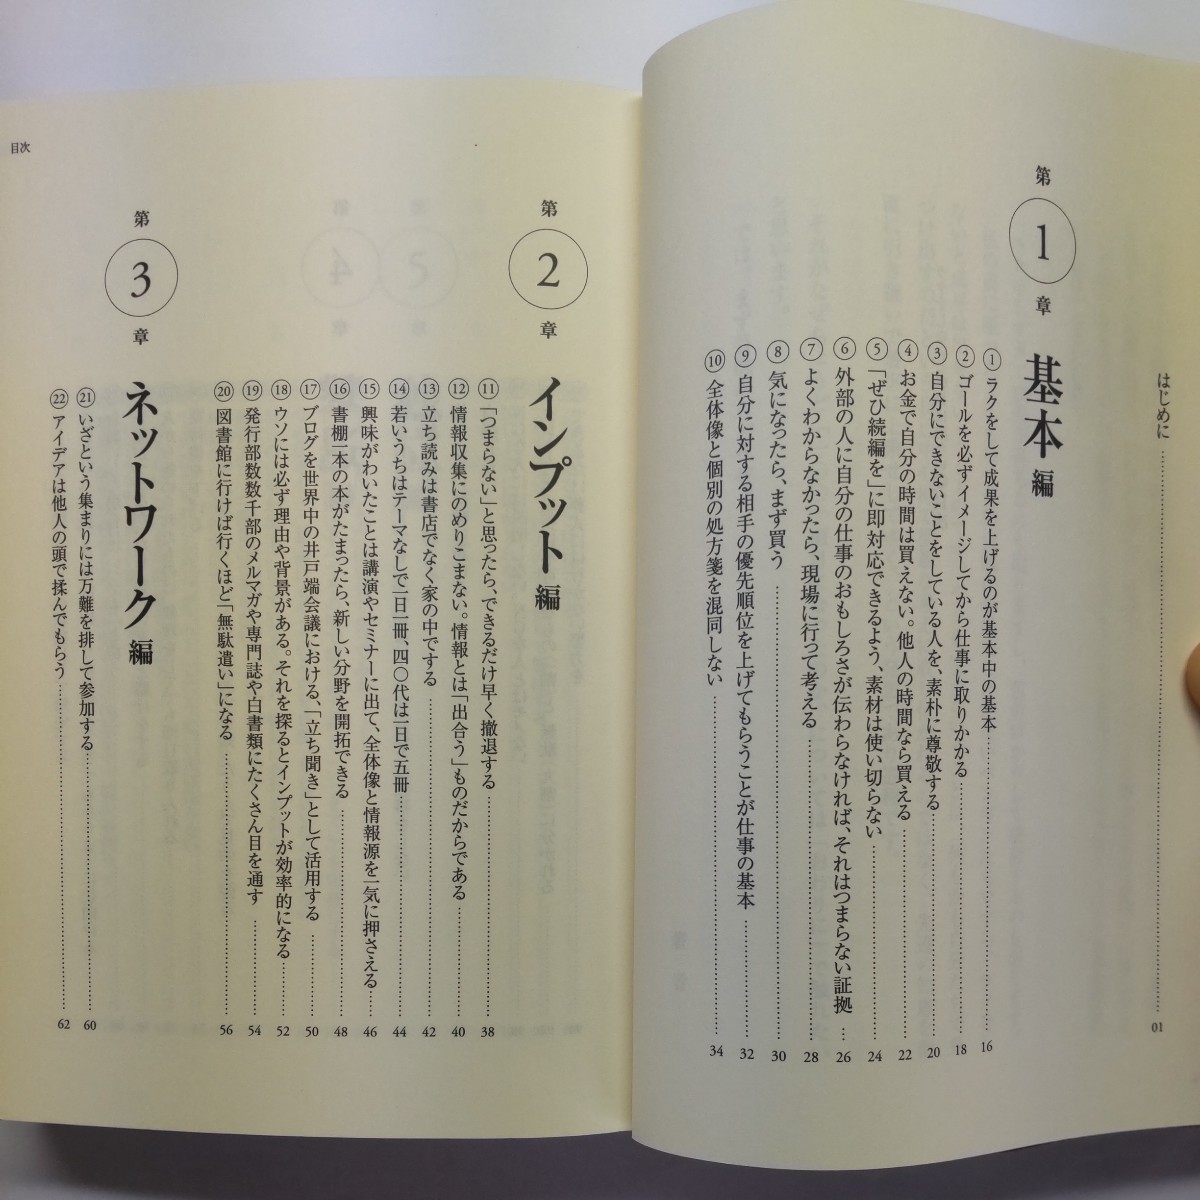 はじめに 01
第1章 基本編
① ラクをして成果を上げるのが基本中の基本 16
② ゴールを必ずイメージしてから仕事に取りかかる 18
③ 自分にできないことをしている人を、素朴に尊敬する 20
④ お金で自分の時間は買えない。他人の時間なら買える 22
⑤ 「ぜひ続編を」に即対応できるよう、素材は使い切らない 24
⑥ 外部の人に自分の仕事のおもしろさが伝わらなければ、それはつまらない証拠 26
⑦ よくわからなかったら、現場に行って考える 28
⑧ 気になったら、まず買う 30
⑨ 自分に対する相手の優先順位を上げてもらうことが仕事の基本 32
⑩ 全体像と個別の処方箋を混同しない 34
目次
第2章 インプット編
⑪ 「つまらない」と思ったら、できるだけ早く撤退する 38
⑫ 情報収集にのめりこまない。情報とは「出合う」ものだからである 40
⑬ 立ち読みは書店でなく家の中でする 42
⑭ 若いうちはテーマなしで一日一冊、四〇代は一日で五冊 44
⑮ 興味がわいたことは講演やセミナーに出て、全体像と情報源を一気に押さえる 46
⑯ 書棚一本の本がたまったら、新しい分野を開拓できる 48
⑰ ブログを世界中の井戸端会議における、「立ち聞き」として活用する 50
⑱ ウソには必ず理由や背景がある。それを探るとインプットが効率的になる 52
⑲ 発行部数数千部のメルマガや専門誌や白書類にたくさん目を通す 54
⑳ 図書館に行けば行くほど「無駄遣い」になる 56
第3章 ネットワーク編
㉑ いざという集まりには万難を排して参加する 60
㉒ アイデアは他人の頭で揉んでもらう 62